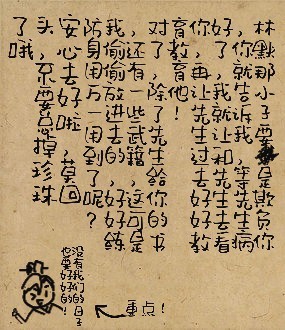 林默那小子要是欺负你
了，你就告诉我，等先生病
好，我就让和先生去看
你，再让先生过去好好教
育教育他！
对了，除了先生给你的书
，还有一些武籍，这可是
我偷偷放进去的，好好练
防身用万一用到了呢？
安心去好啦，莫回
头，不要总掉珍珠
了哦，
没有我们的日子
也要好好的！
重点！